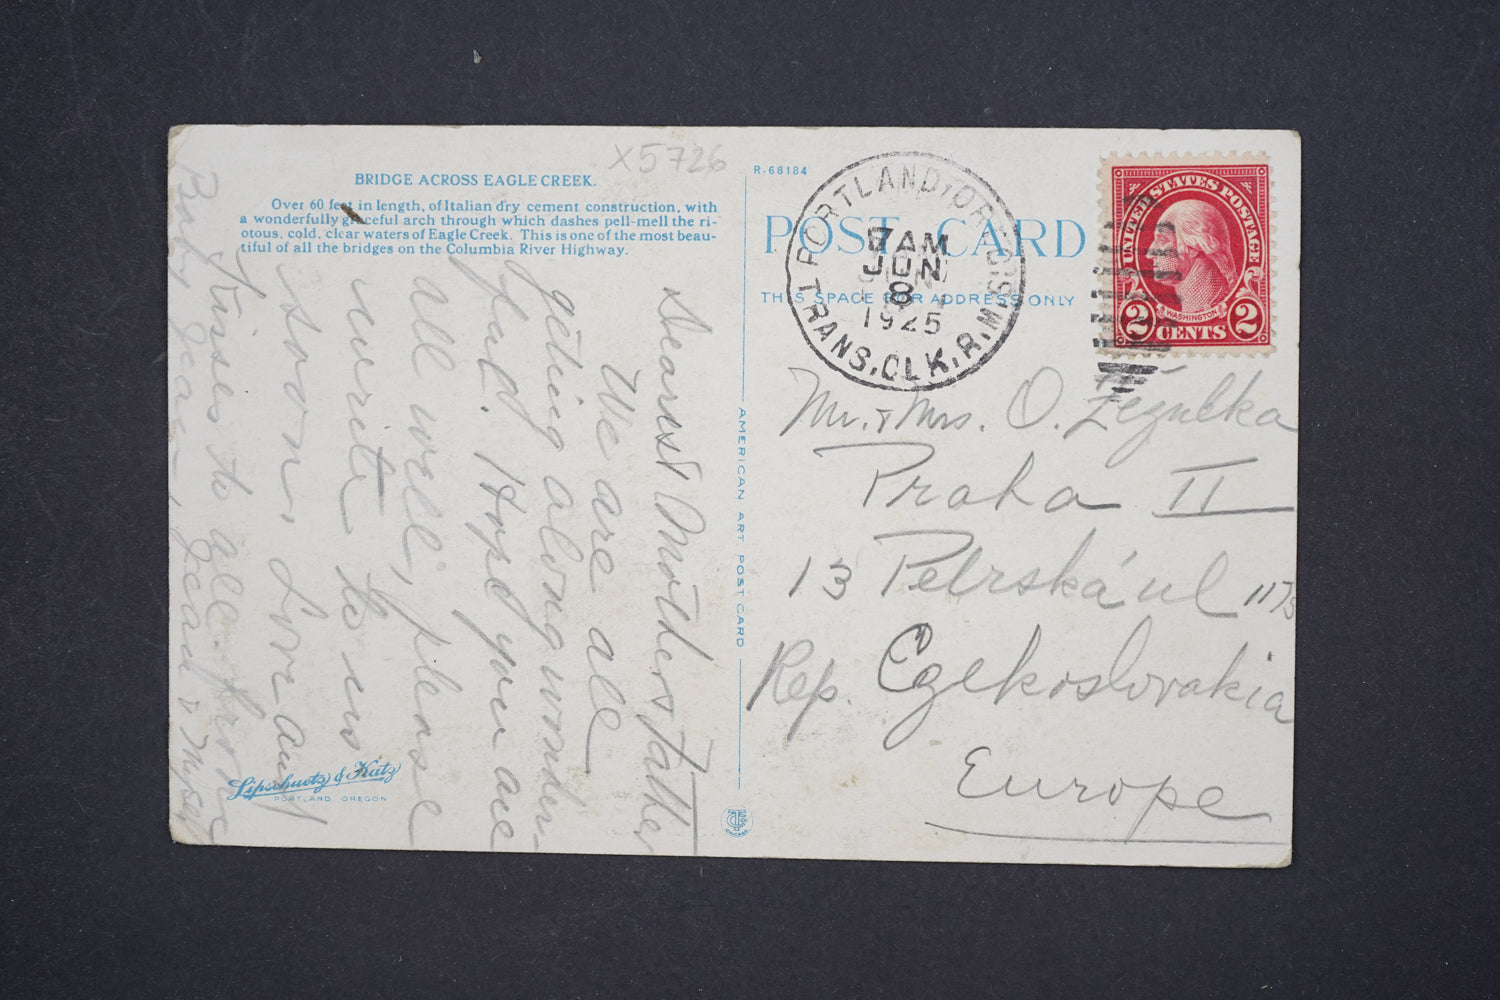 X5726
BRIDGE ACROSS EAGLE CREEK.
Over 60 feet in length, of Italian dry cement construction, with
a wonderfully graceful arch through which dashes pell-mell the ri-
otous, cold, clear waters of Eagle Creek. This is one of the most beau-
tiful of all the bridges on the Columbia River Highway.
Dearest Mother & Father
We are all
geting along wonder-
full. Hope you are
all well, please
write to us
soon. Love and
Kisses to all from
Baby Jean, & Myself
Lipschuetz & Katz
PORTLAND, OREGON
R-68184
POST CARD
THIS SPACE FOR ADDRESS ONLY
AMERICAN ART POST CARD
PORTLAND, ORE.
7 AM
JUN
8
1925
TRANS. CLK. R.M.S.
UNITED STATES POSTAGE
WASHINGTON
2 CENTS 2
Mr. & Mrs. O.
Praha II
13 Petrská ul 1175
Rep. Czekoslovakia
Europe